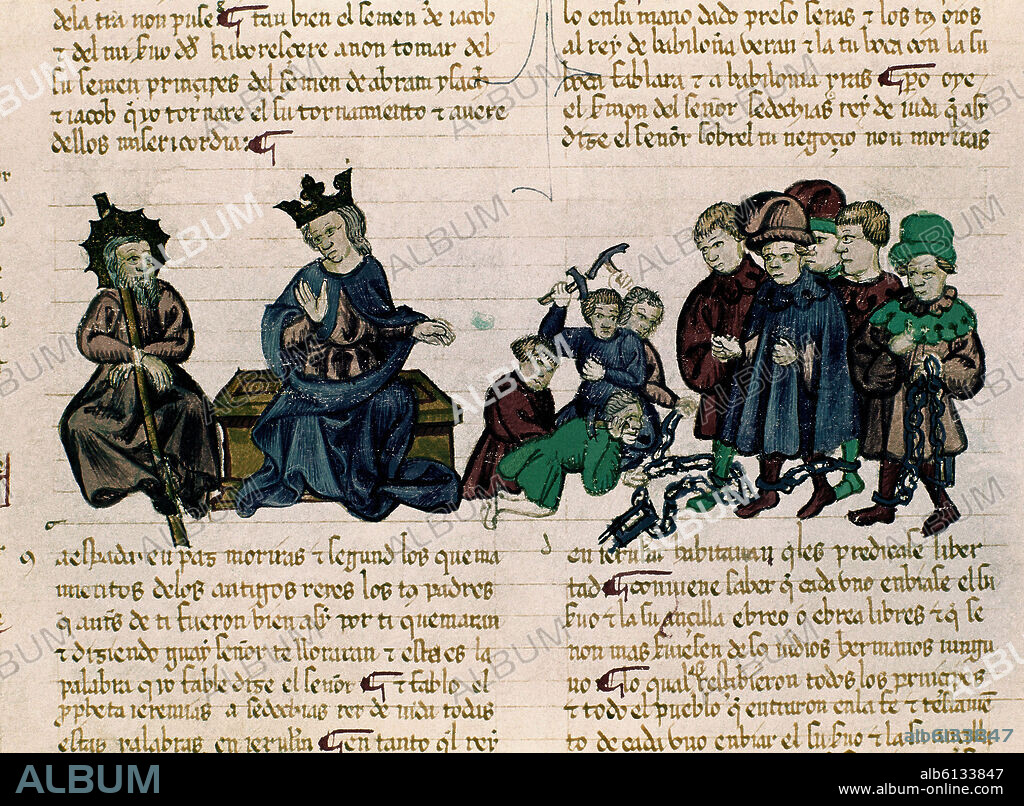 dela tr̃a non puse ¶ tan bien el semen de iacob
⁊ del mi
aborescere a non tomar del
su semen principes del semen de abram ysac
⁊ iacob q̃ yo tornare el su tornamiento ⁊ auere
dellos misericordia: ¶
a espada. en paz moriras ⁊ segund los quema
mientos delos antigos reyes los tus padres
q̃ antes de ti fueron bien asy por ti quemaran
⁊ diziendo guay señor te lloraran ⁊ esta es la
palabra q̃ yo fable dize el señor ¶ ⁊ fablo el
ꝓpheta ieremias a sedechias rey de iuda todas
estas palabras en ierl̃m ¶ en tanto q̃l rey
lo en su mano dado preso seras ⁊ los tus oios
al rey de babiloña veran ⁊ la tu boca con la su
boca fablara ⁊ a babilonia yras ¶ ꝑo oye
el sermon del señor sedechias rey de iuda q̃ asy
dize el señor sobrel tu negoçio non morras
en ierl̃m habitauan q̃ les predicase liber
tad ¶ conuiene saber q̃ cada vno enbiase el su
sieruo ⁊ la su ançilla ebreo o ebrea libres ⁊ q̃ se
non mas siruiesen de los iudios hermanos ningu
no ¶ lo qual resçibieron todos los principes
⁊ todo el pueblo q̃ entraron en la fe ⁊ testament
to de cada vno enbiar el su sieruo ⁊ la su ançilla
ALBUM
alb6133847
alb6133847
www.album-online.com